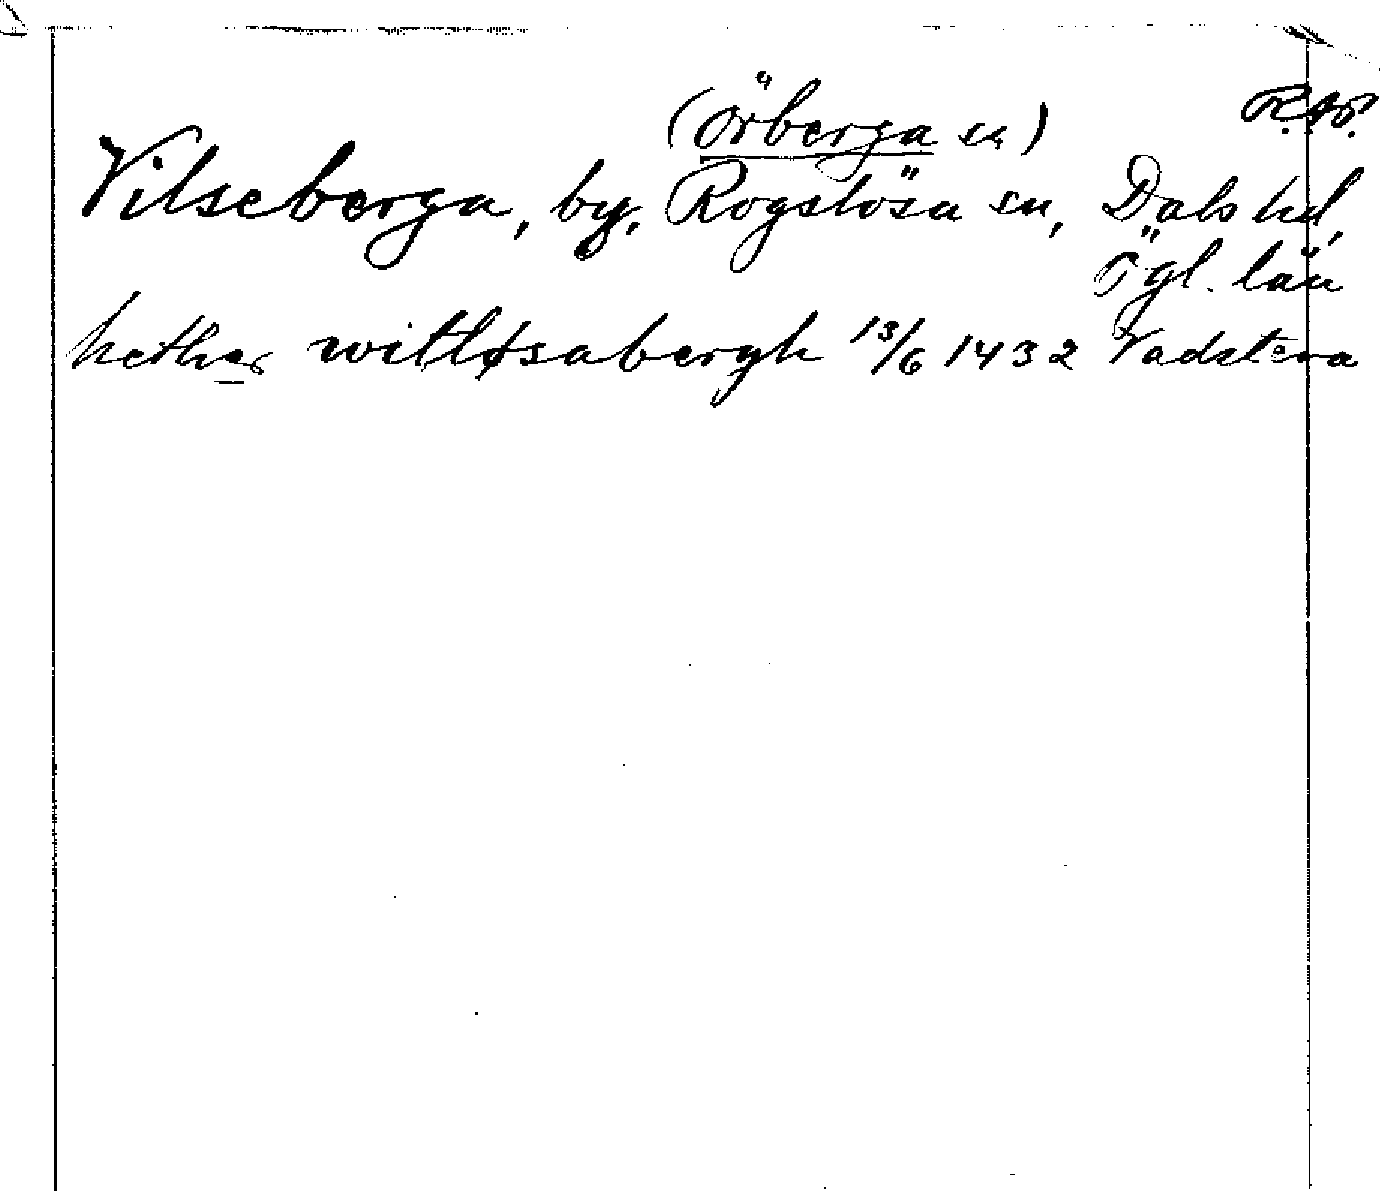 (Örberga sn) R.A.P.
Vilseberga, by, Rogslösa sn, Dals hd,
Ögl. län
hether witløsabergh 13/6 1432 Vadstena